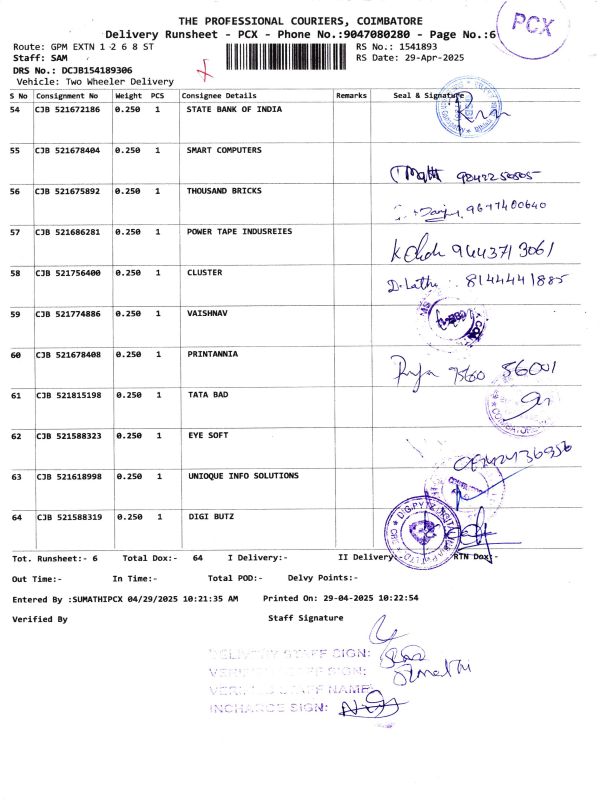 THE PROFESSIONAL COURIERS, COIMBATORE
Delivery Runsheet - PCX - Phone No.:9047080280 - Page No.:6
PCX
Route: GPM EXTN 1 2 6 8 ST
RS No.: 1541893
Staff: SAM
RS Date: 29-Apr-2025
DRS No.: DCJB154189306
Vehicle: Two Wheeler Delivery
S No Consignment No Weight PCS Consignee Details Remarks Seal & Signature
54 CJB 521672186 0.250 1 STATE BANK OF INDIA
55 CJB 521678404 0.250 1 SMART COMPUTERS
56 CJB 521675892 0.250 1 THOUSAND BRICKS
9677400640
57 CJB 521686281 0.250 1 POWER TAPE INDUSREIES
9443713061
58 CJB 521756400 0.250 1 CLUSTER
8144441885
59 CJB 521774886 0.250 1 VAISHNAV
60 CJB 521678408 0.250 1 PRINTANNIA
56001
61 CJB 521815198 0.250 1 TATA BAD
62 CJB 521588323 0.250 1 EYE SOFT
63 CJB 521618998 0.250 1 UNIOQUE INFO SOLUTIONS
64 CJB 521588319 0.250 1 DIGI BUTZ
Tot. Runsheet:- 6 Total Dox:- 64 I Delivery:- II Delivery:- RTN Dox:-
Out Time:- In Time:- Total POD:- Delvy Points:-
Entered By :SUMATHIPCX 04/29/2025 10:21:35 AM Printed On: 29-04-2025 10:22:54
Verified By Staff Signature
DELIVERY STAFF SIGN:
VERIFIED STAFF SIGN:
VERIFIED STAFF NAME:
INCHARGE SIGN: